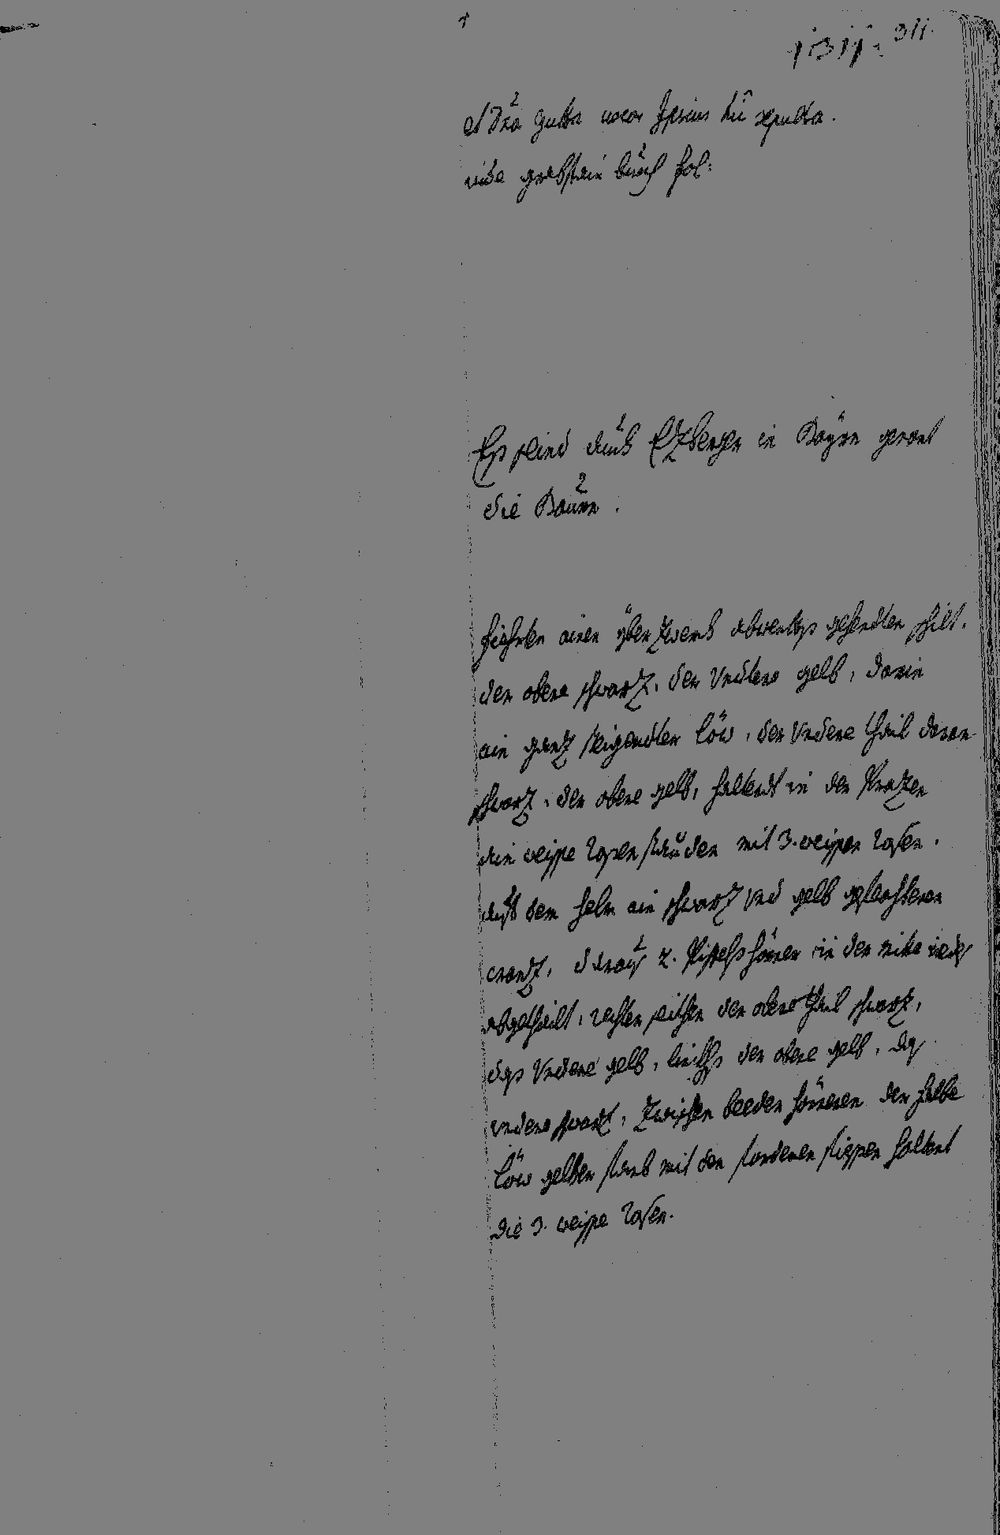 1311. 311.
vide grabstain buech fol:
Es seind auch Etzberger in Bayrn gewont
die Baurn.
fiehrten ainen überzwerch abwerts gesenckten schilt.
der obere schwarz, der Undere gelb, darin
ain ganz steigendter löw, der Undere thail daran
schwarz, der obere gelb, haltendt in den Prazen
ain weisse rosenstauden mit 3. weissen rosen.
auf dem helm ain schwarz und gelb geflochtener
cranz, darauf 2. Pifflshörner in der mite
abgethailt, rechter seithen der obere thail schwarz,
das Undere gelb, linckhs der obere gelb, das
undere schwarz, zwischen beeden hörneren der halbe
löw gelber farb mit den forderen fiessen haltent
die 3. weisse rosen.